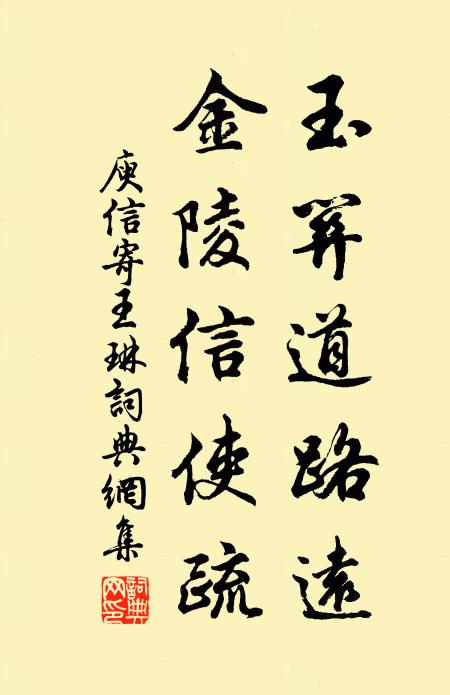 玉關道路遠
金陵信使疏
庾信寄王琳詞典網集
詞典
网印